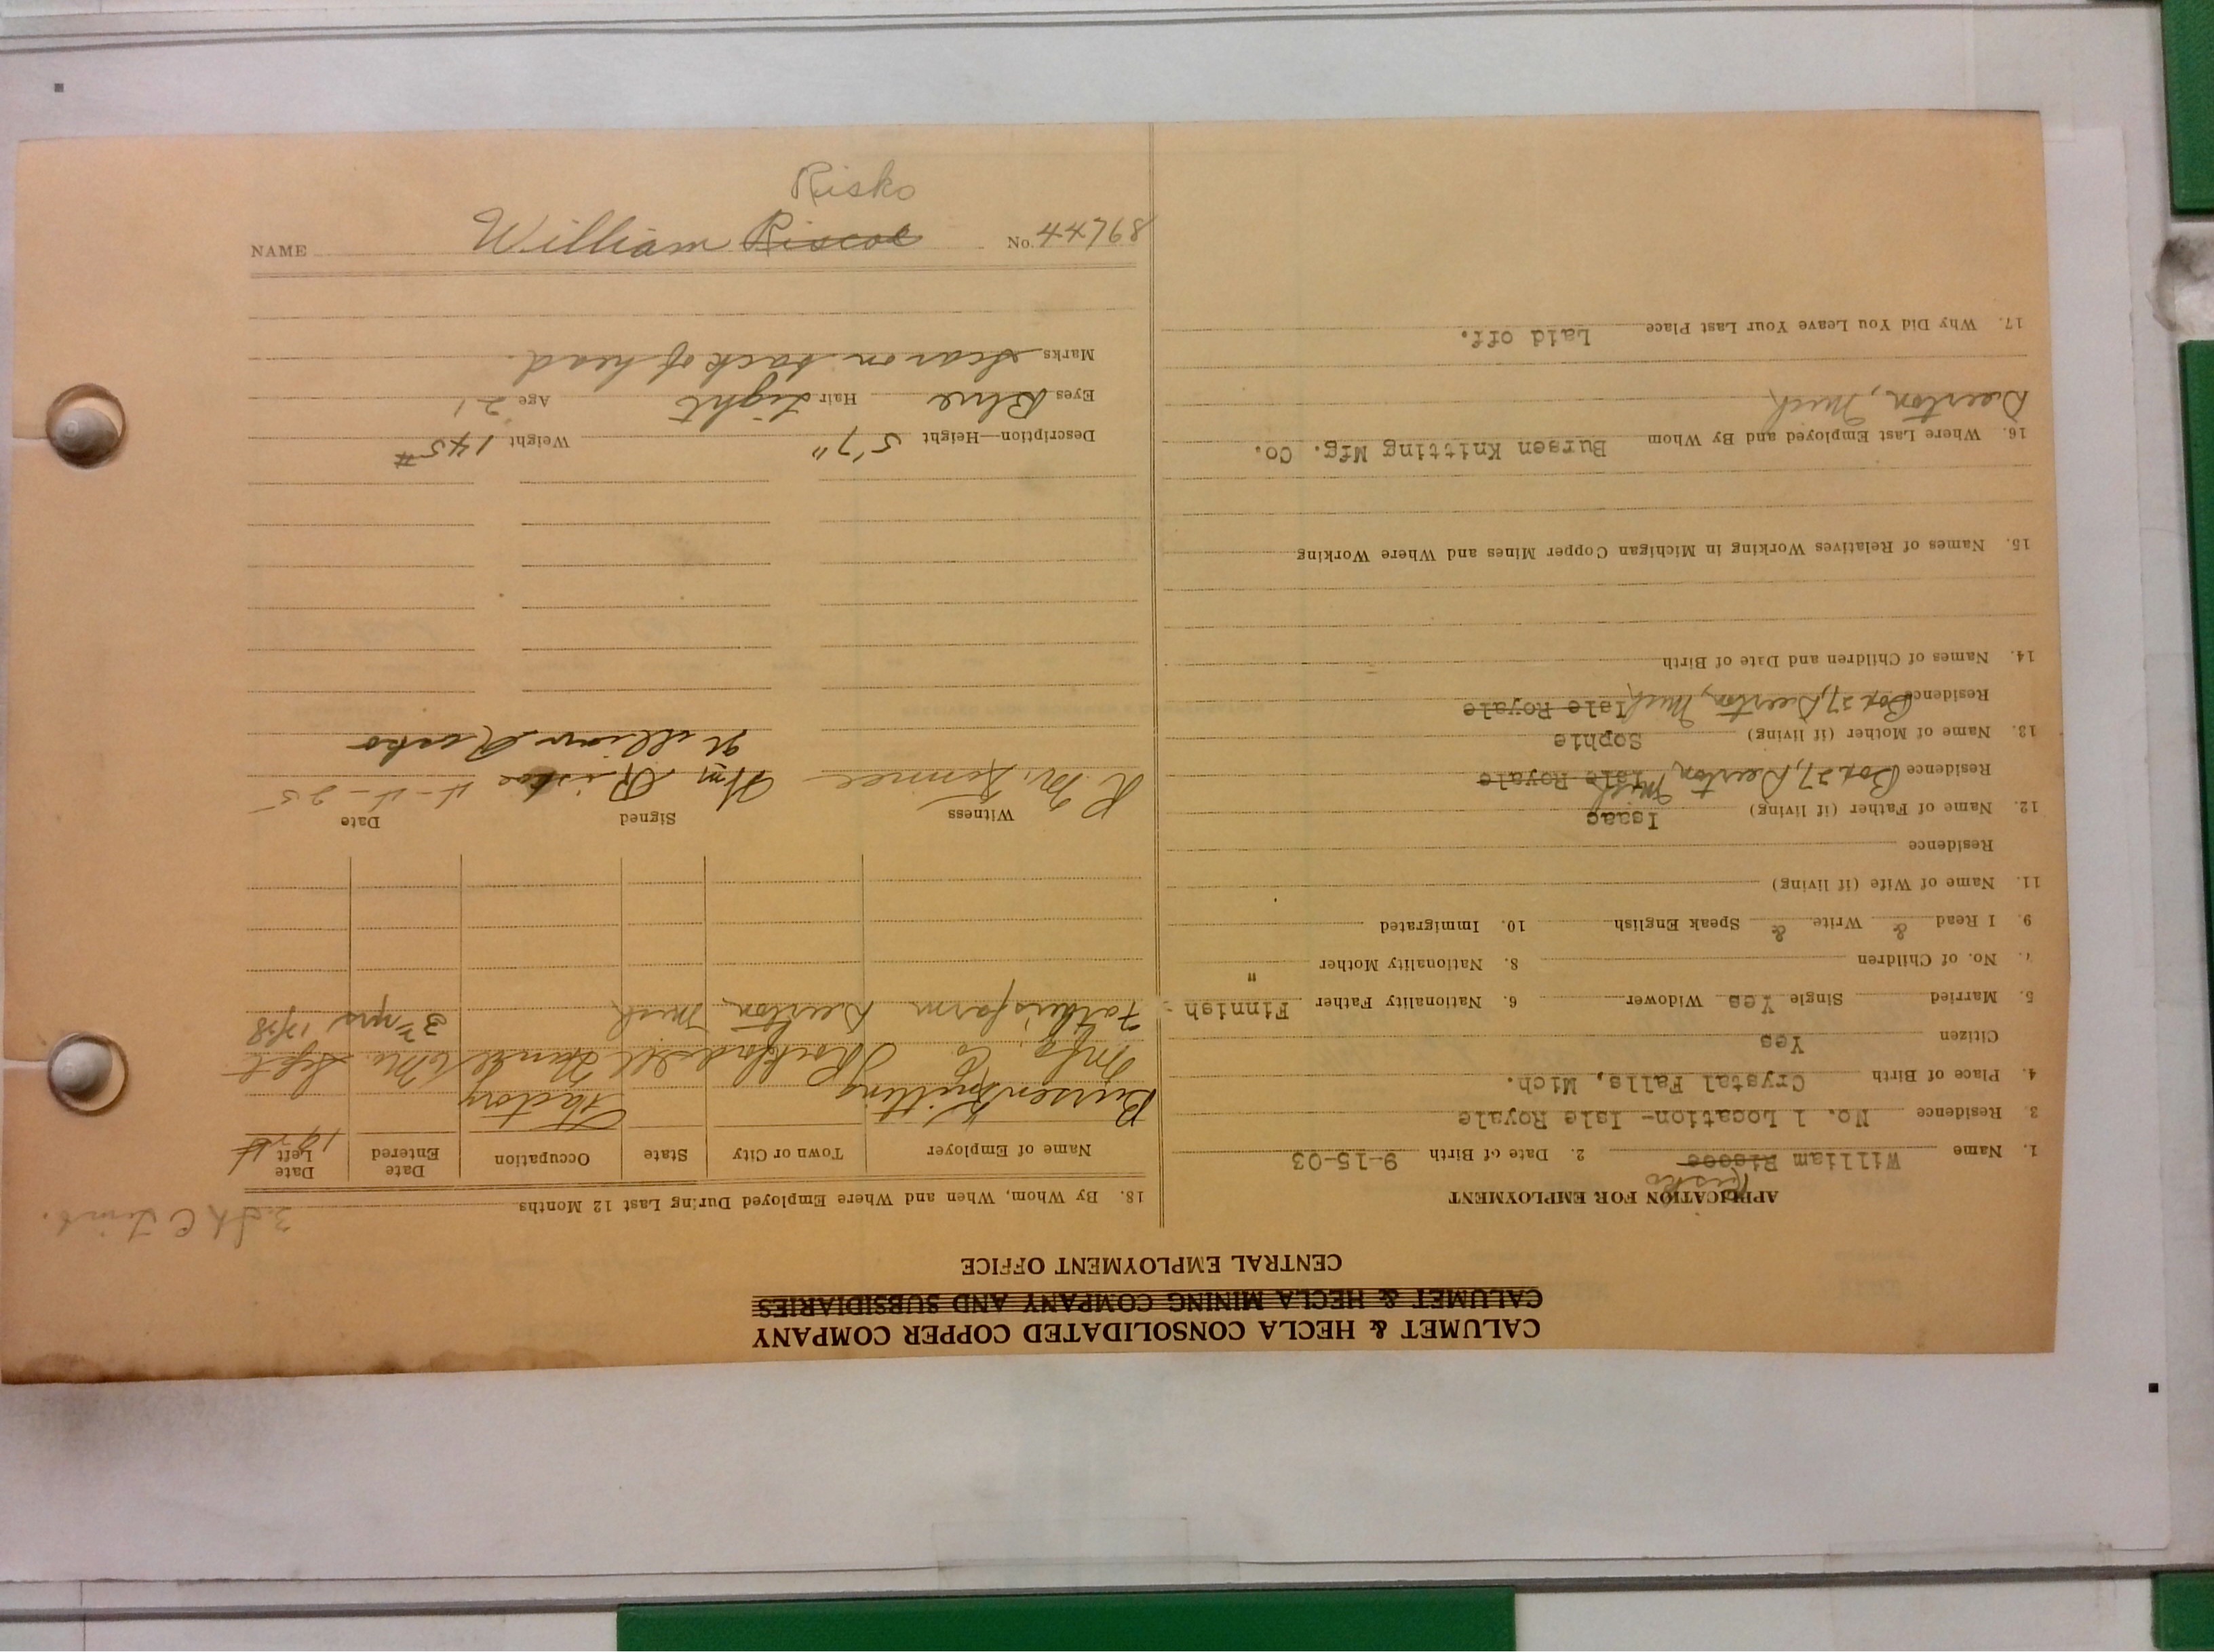 CALUMET & HECLA CONSOLIDATED COPPER COMPANY
CALUMET & HECLA MINING COMPANY AND SUBSIDIARIES
CENTRAL EMPLOYMENT OFFICE
APPLICATION FOR EMPLOYMENT
Risko
1. Name William Riscoe 2. Date of Birth 9-15-03
3. Residence No. 1 Location- Isle Royale
4. Place of Birth Crystal Falls, Mich.
Citizen Yes
5. Married Single Yes Widower 6. Nationality Father Finnish
7. No. of Children 8. Nationality Mother "
9. I Read & Write & Speak English 10. Immigrated
11. Name of Wife (if living)
Residence
12. Name of Father (if living) Isaac
Residence Box 27, Deerton, Mich Isle Royale
13. Name of Mother (if living) Sophie
Residence Box 27, Deerton, Mich Isle Royale
14. Names of Children and Date of Birth
15. Names of Relatives Working in Michigan Copper Mines and Where Working
16. Where Last Employed and By Whom Bursen Knitting Mfg. Co.
Deerton, Mich
17. Why Did You Leave Your Last Place Laid off.
18. By Whom, When and Where Employed During Last 12 Months
Name of Employer Town or City State Occupation Date Entered Date Left
Bursen Knitting Factory 1924
Mfg. Co Rockford Ill Hand 6 Mo. Sept
Fathers farm Deerton, Mich 3 yrs 1/28
Witness Signed Date
Wm Riskoe 4-4-25
William Risko
Description—Height 5'7" Weight 145#
Eyes Blue Hair Light Age 21
Marks Scar on back of head.
Risko
NAME William Riscoe No. 44768